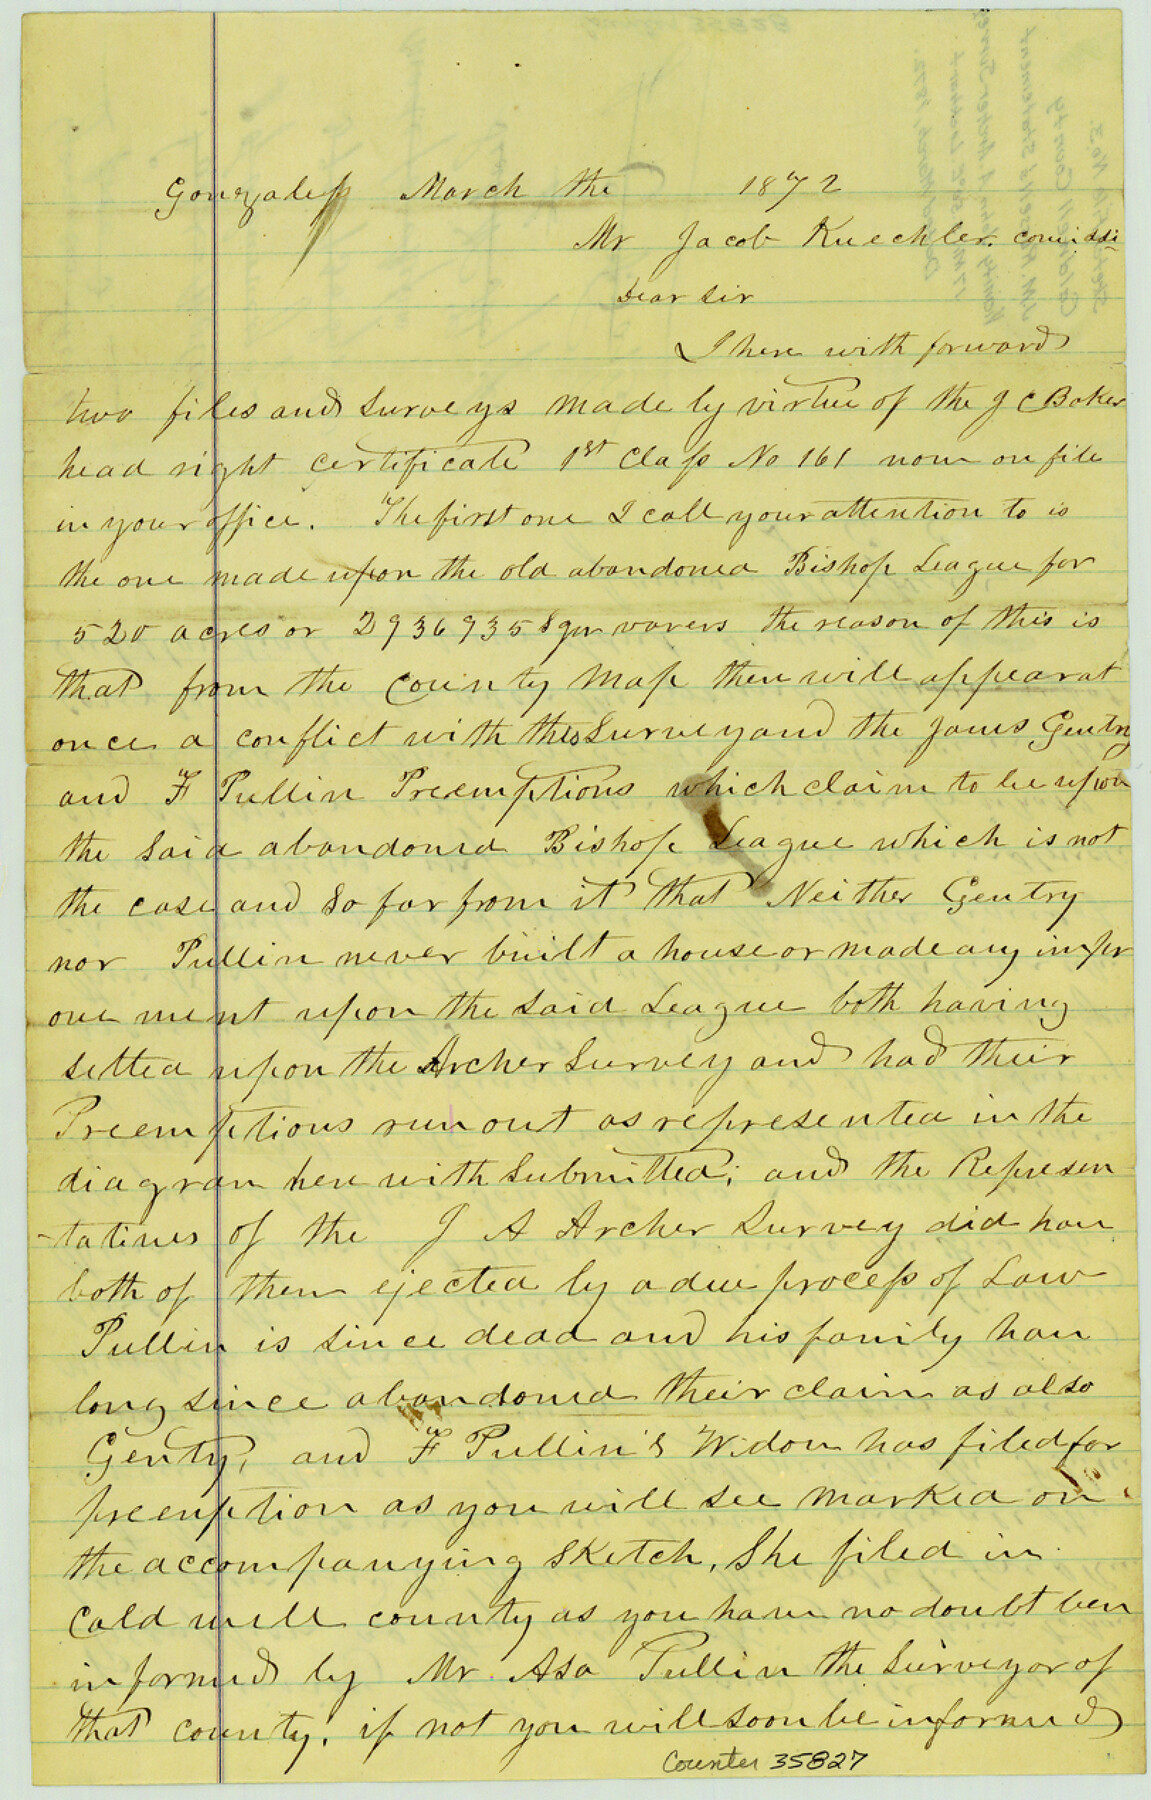 Gonzales March the 1872
Mr Jacob Kuechler. comissi
Dear Sir
I here with forward
two files and Surveys made by virtue of the J C Baker
head right certificate 1st Class No 161 now on file
in your office. The first one I call your attention to is
the one made upon the old abandoned Bishop League for
520 acres or 2936935 Sqr varers the reason of this is
that from the County Map there will appear at
once a conflict with this Survey and the James Gentry
and F Pullin Preemptions which claim to be upon
the Said abandoned Bishop League which is not
the case and So far from it that Neither Gentry
nor Pullin never built a house or made any impr
ove ment upon the Said League both having
setted upon the Archer Survey and had their
Preemptions run out as represented in the
diagram here with Submitted; and the Represen
-tatives of the J A Archer Survey did have
both of them ejected by a due process of Law
Pullin is since dead and his family have
long since abandoned their claim as also
Genty, and F Pullin's Widow has filed for
preemption as you will see marked on
the accompanying Sketch, She filed in
Cald well county as you have no doubt ben
informed by Mr Asa Pullin the Surveyor of
that county, if not you will soon be informed
Counter 35827